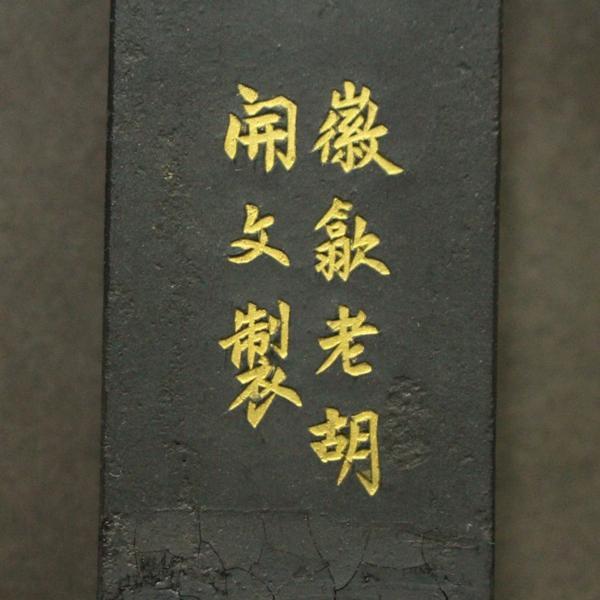 徽歙老胡
開文製